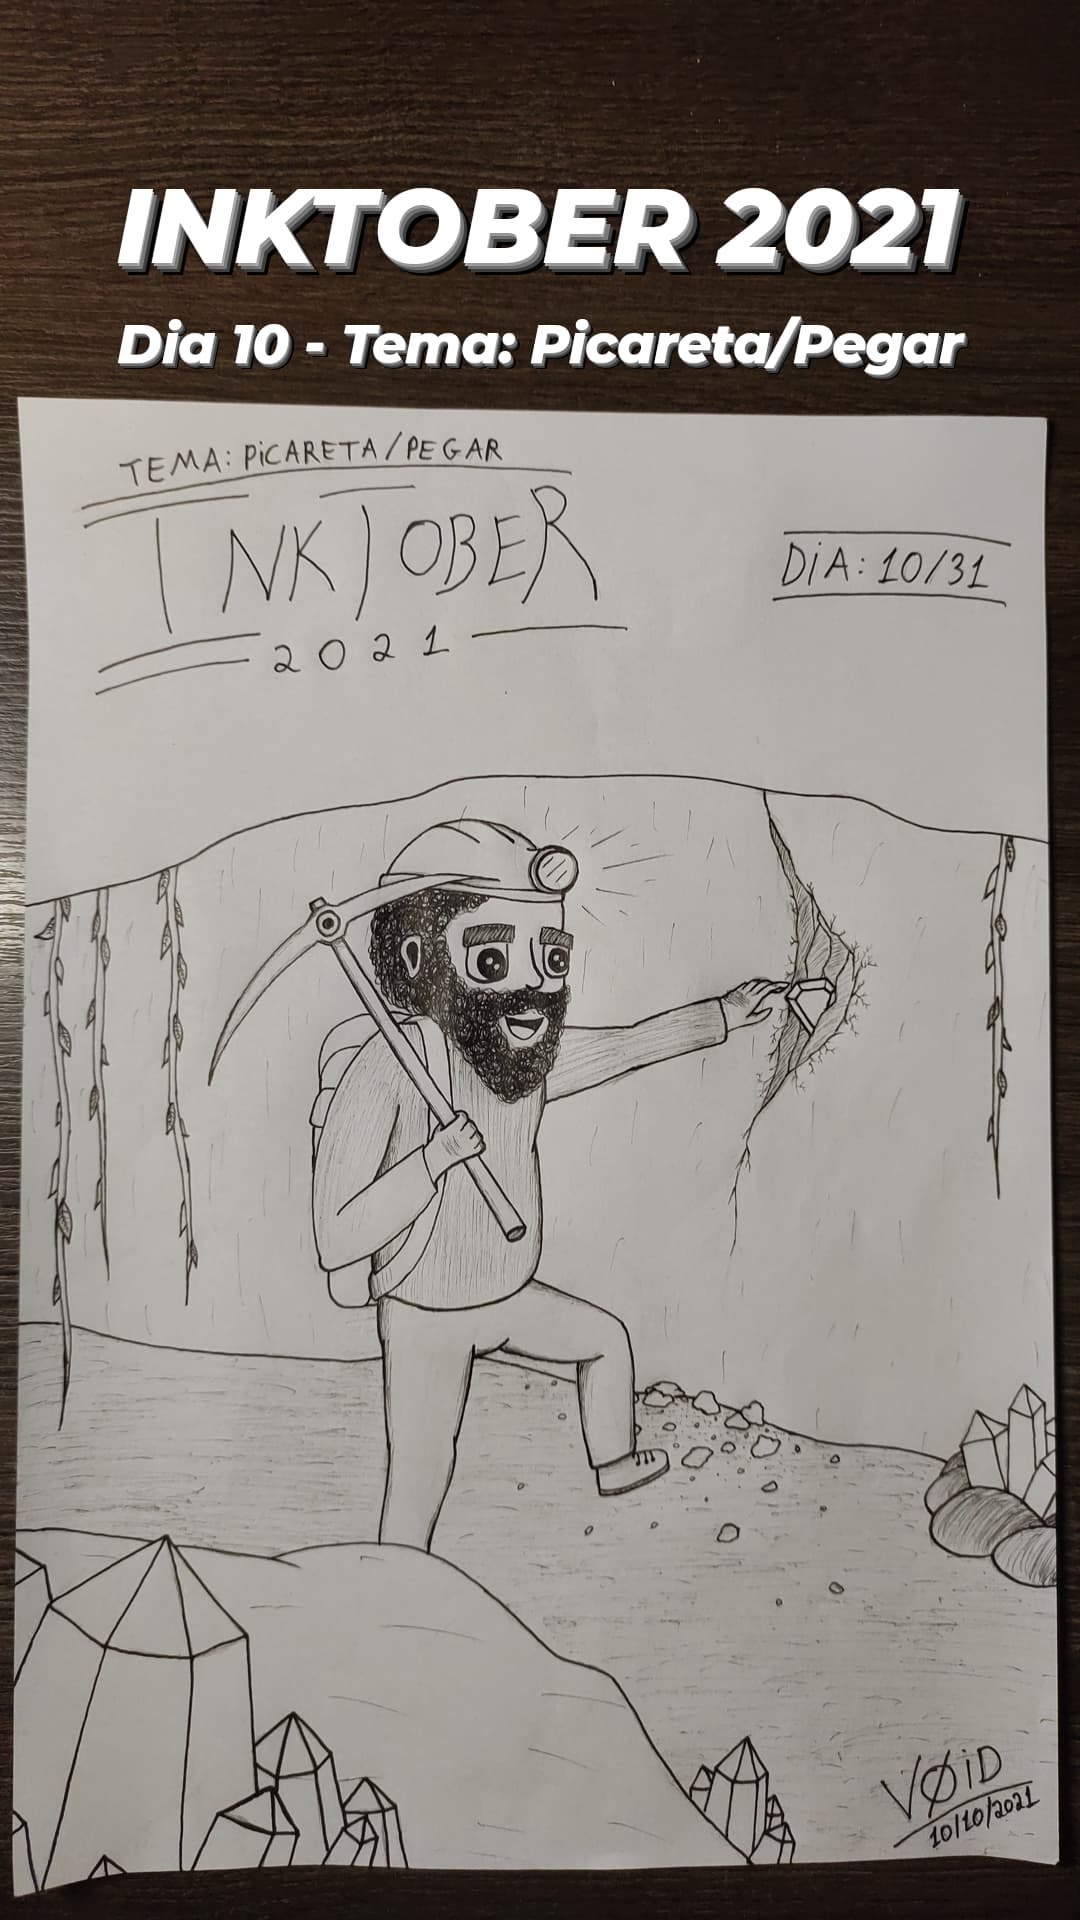 INKTOBER 2021
Dia 10 - Tema: Picareta/Pegar
TEMA: PiCARETA/PEGAR
INKTOBER
2021
DiA: 10/31
VØiD
10/10/2021